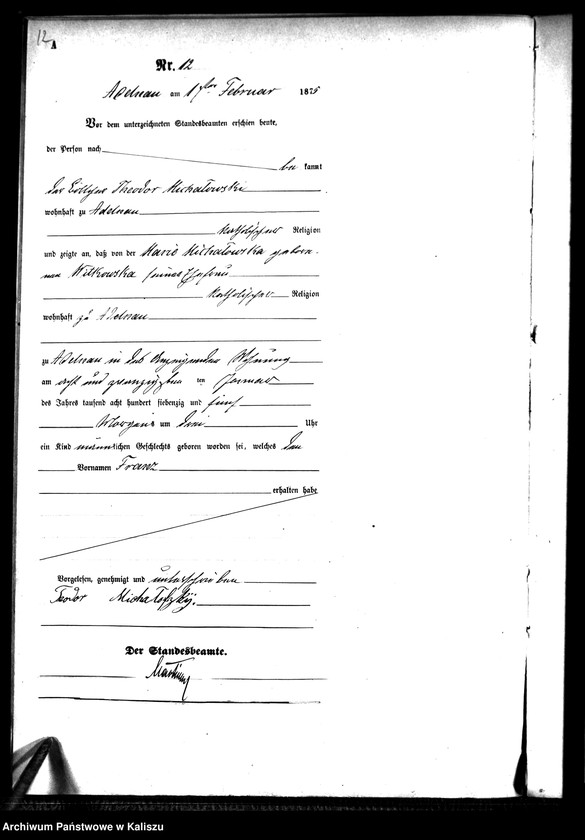 12
A
Nr. 12
Adelnau am 1ten Februar 1875
Vor dem unterzeichneten Standesbeamten erschien heute,
der Person nach
be kannt
der Theodor Michałowski
wohnhaft zu Adelnau
katholischer Religion
und zeigte an, daß von der Marie Michałowska gebore-
nen Witkowska seiner Ehefrau
katholischer Religion
wohnhaft zu Adelnau
zu Adelnau in der Wohnung
am acht und zwanzigsten ten Januar
des Jahres tausend acht hundert siebenzig und fünf
Morgens um drei Uhr
ein Kind männlichen Geschlechts geboren worden sei, welches den
Vornamen Franz
erhalten habe
Vorgelesen, genehmigt und unterschrieben
Teodor
Der Standesbeamte.
Archiwum Państwowe w Kaliszu